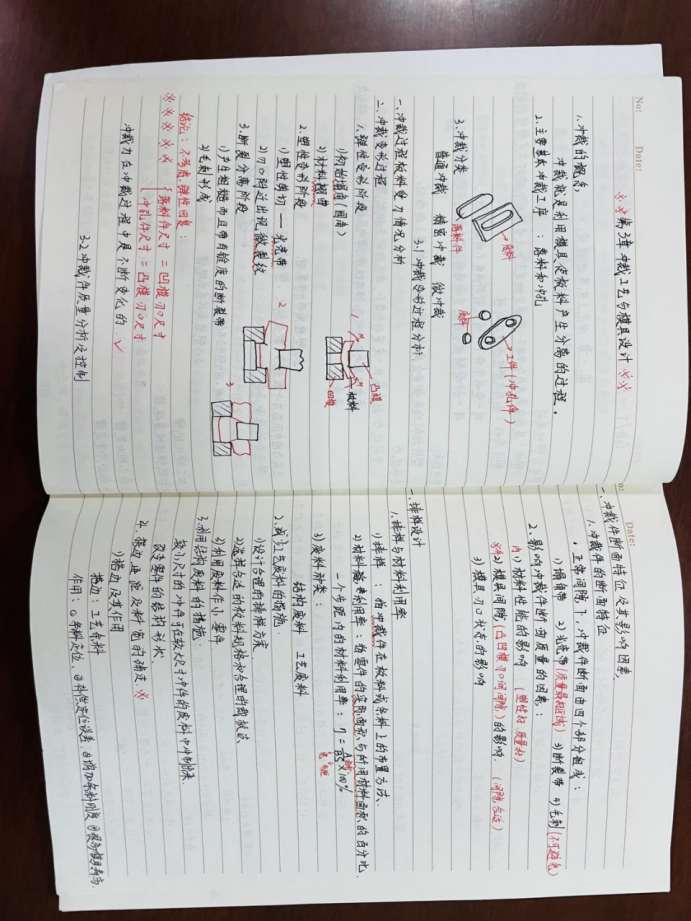 No:
Date:
※※第3章 冲裁工艺与模具设计 ※※
1.冲裁的概念,
冲裁就是利用模具使板料产生分离的过程。
2.主要基本冲裁工序 : 落料和冲孔
废料
落料件
工件(冲孔件)
废料
3.冲裁分类
普通冲裁 精密冲裁 微冲裁
3.1 冲裁变形过程分析
一.冲裁过程板料受力情况分析
二.冲裁变形过程
1.弹性变形阶段
1)初始塌角(圆角)
2)材料
1
凸模
板料
凹模
2.塑性变形阶段
1)塑性剪切 — 光亮带
2)刃口附近出现微裂纹
2
3.断裂分离阶段
1)产生粗糙而且带有锥度的断裂带
2)毛刺形成
3
结论:不考虑弹性回复:
※※※※※ { 落料件尺寸 = 凹模刃口尺寸
冲孔件尺寸 = 凸模刃口尺寸
冲裁力在冲裁过程中是不断变化的 ✓
3.2 冲裁件质量分析及控制
Date:
一.冲裁件断面特征及其影响因素,
1.冲裁件的断面特征
正常间隙下,冲裁件断面由四个部分组成:
1)塌角带 2)光亮带(质量最好区域) 3)断裂带 4)毛刺(不可避免)
2.影响冲裁件断面质量的因素:
1)材料性能的影响 (塑性好 质量好)
※※2)模具间隙(凸凹模刃口间间隙)的影响. (间隙合适)
3)模具刃口状态的影响
一.排样设计
1.排样与材料利用率
1)排样 : 指冲裁件在板料或条料上的布置方法.
2)材料利用率:指零件的实际面积与所用材料面积的百分比.
一个步距内的材料利用率: η = A/BS ×100%
3)废料种类:
结构废料 工艺废料
2.减少工艺废料的措施.
1)设计合理的排样方案
2)选择合适的板料规格和合理的裁板法
3)利用废料作小零件
3.利用结构废料的措施:
较小尺寸的冲件可在较大尺寸冲件的废料中冲制出来.
改变零件的结构形状
4.搭边、步距及料宽的确定.※
1)搭边及其作用
搭边:工艺余料
作用:①条料定位,②补偿定位误差.③增加条料刚度 ④提高模具寿命.